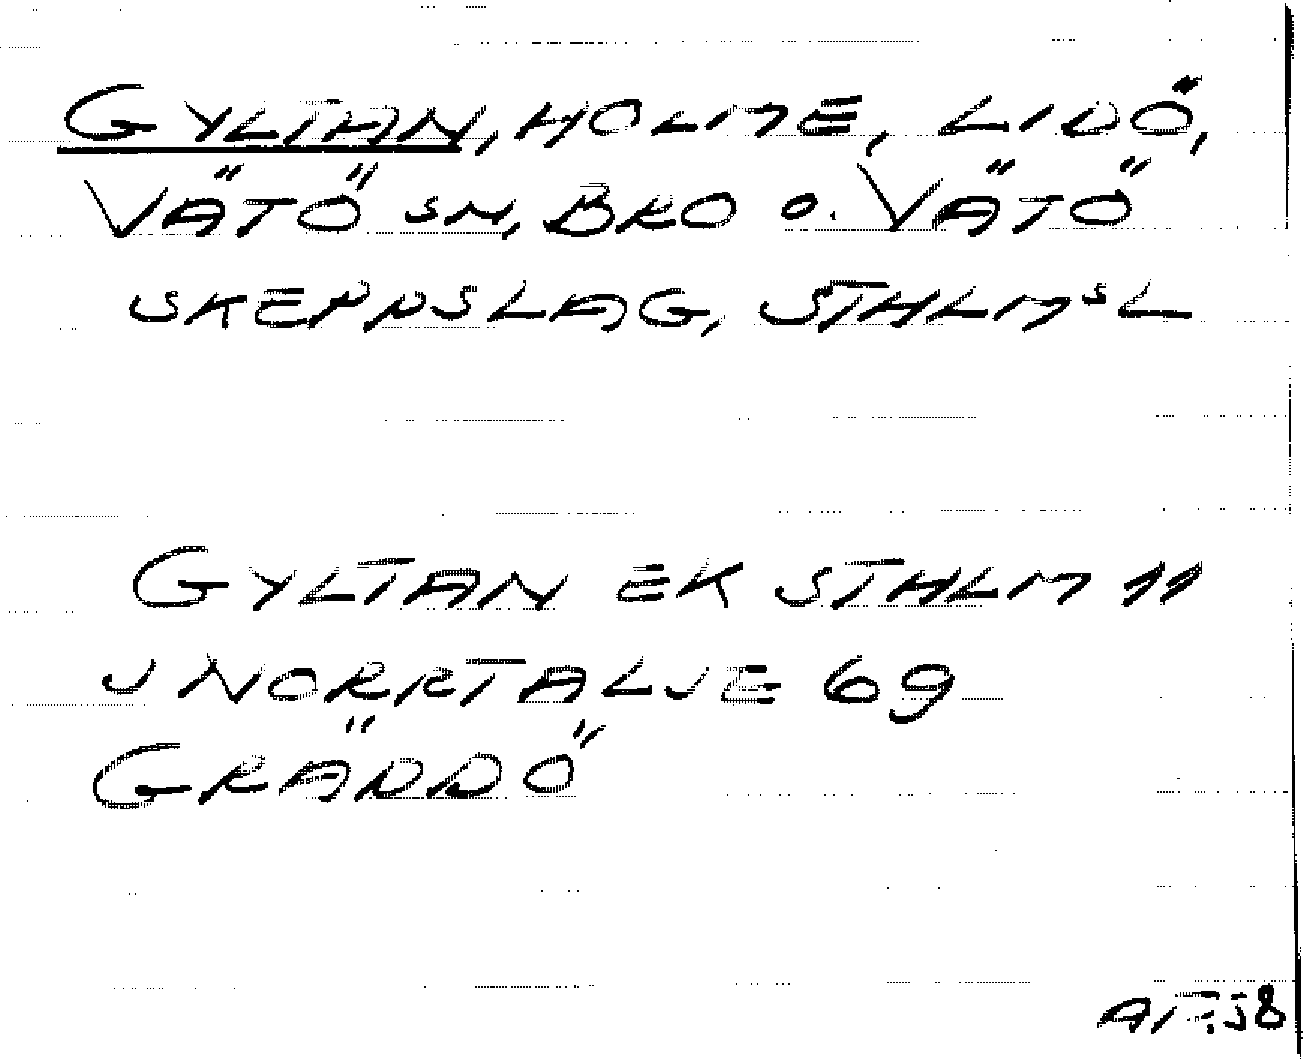 GYLTAN, HOLME, LIDÖ,
VÄTÖ SN, BRO O. VÄTÖ
SKEPPSLAG, STHLMS L
GYLTAN EK STHLM 11
J NORRTALJE 69
GRÄDDÖ